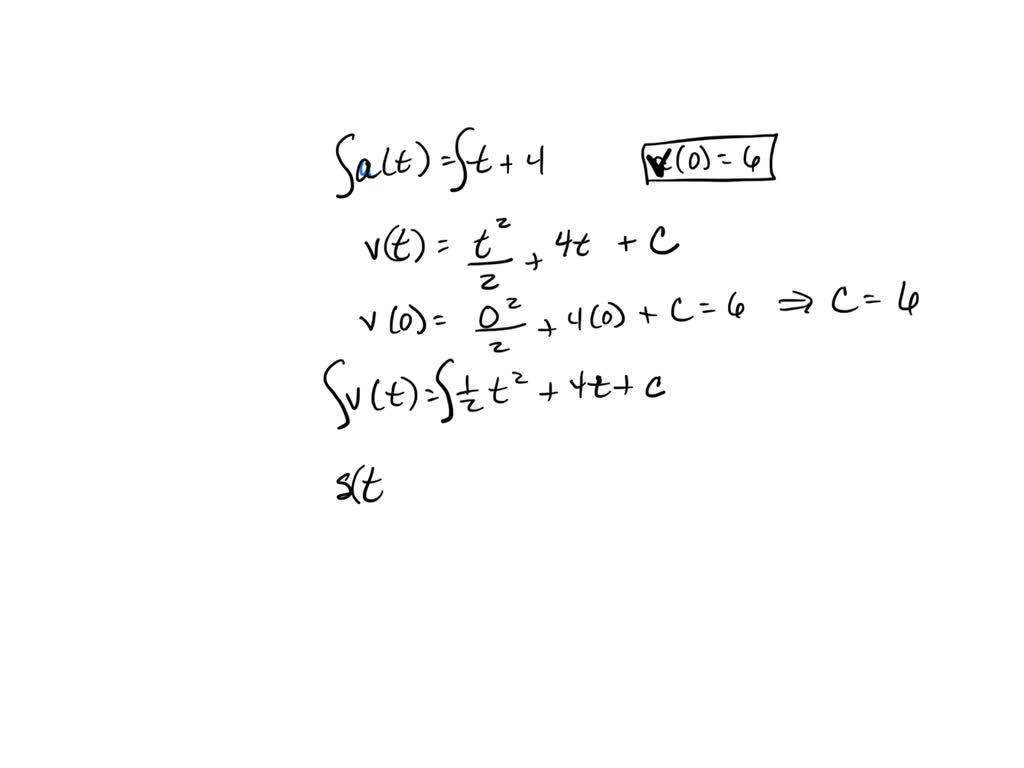 ∫a(t) = ∫t + 4 v(0) = 6
v(t) = t²/2 + 4t + C
v(0) = 0²/2 + 4(0) + C = 6 ⇒ C = 6
∫v(t) = ∫½t² + 4t + C
s(t